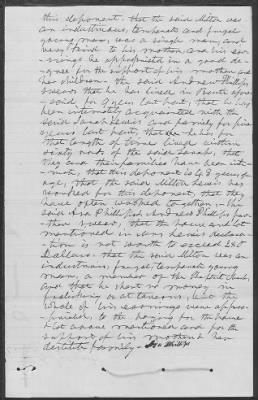 this deponant, that the said Milton was
an industrious, temperate and frugal
young man, was a single man, and
very kind to his mother, and his ear-
nings he appropriated in a good de-
gree for the support of his mother and
her children. The said Andrew Phillips
swears that he has lived in
said, for 9 years last past, that he has
been intimately acquainted with the
said Sarah and family for five
years last past, that he has for
that length of time lived within
sixty rods of the said Sarah, that
they and their families have been inti-
mate, that this deponant is 48 years of
age, that the said Milton has
worked for this deponant, that they
have often worked together, the
said Ira Phillips & Andrew Phillips fur-
ther swear, that the house and lot
mentioned in her declara-
tion is not worth to exceed
Dollars. that the said Milton was an
industrious, frugal, temperate young
man, a member of the Baptist Church,
and that he spent no money in
or at taverns, but the
whole of his earnings were appro-
priated, to the paying for the house
& lot above mentioned and for the
support of his mother & her
destitute family — Ira Phillips